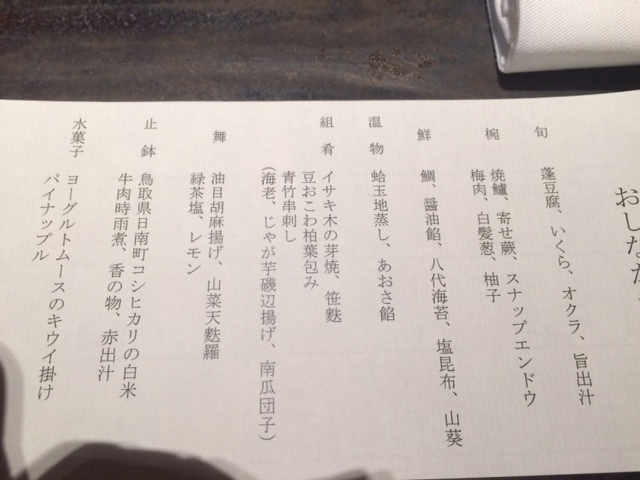 おしなが
旬　蓬豆腐、いくら、オクラ、旨出汁
椀　焼鱸、寄せ蕨、スナップエンドウ
梅肉、白髪葱、柚子
鮮　鯛、醤油餡、八代海苔、塩昆布、山葵
温物　蛤玉地蒸し、あおさ餡
組肴　イサキ木の芽焼、笹麩
豆おこわ柏葉包み
青竹串刺し
（海老、じゃが芋磯辺揚げ、南瓜団子）
舞　油目胡麻揚げ、山菜天麩羅
緑茶塩、レモン
止鉢　鳥取県日南町コシヒカリの白米
牛肉時雨煮、香の物、赤出汁
水菓子　ヨーグルトムースのキウイ掛け
パイナップル